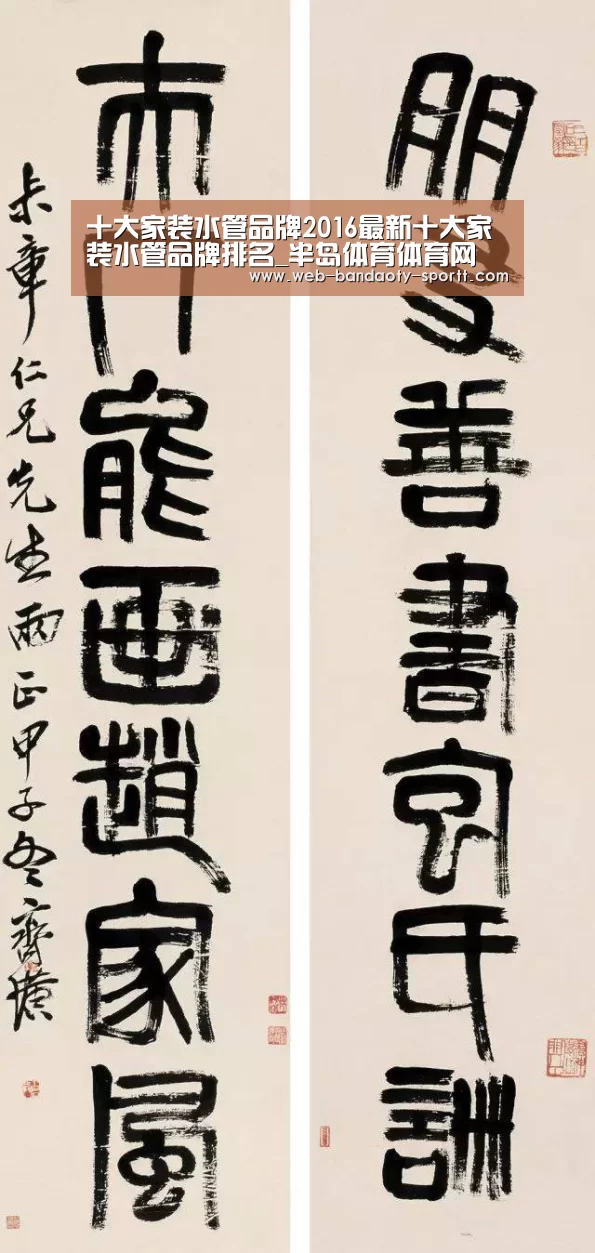 十大家装水管品牌2016最新十大家
装水管品牌排名_半岛体育体育网
www.web-bandaoty-sportt.com
朋善書宏氏訓
能畫趙家風
章仁兄先生兩正甲子冬齊璜